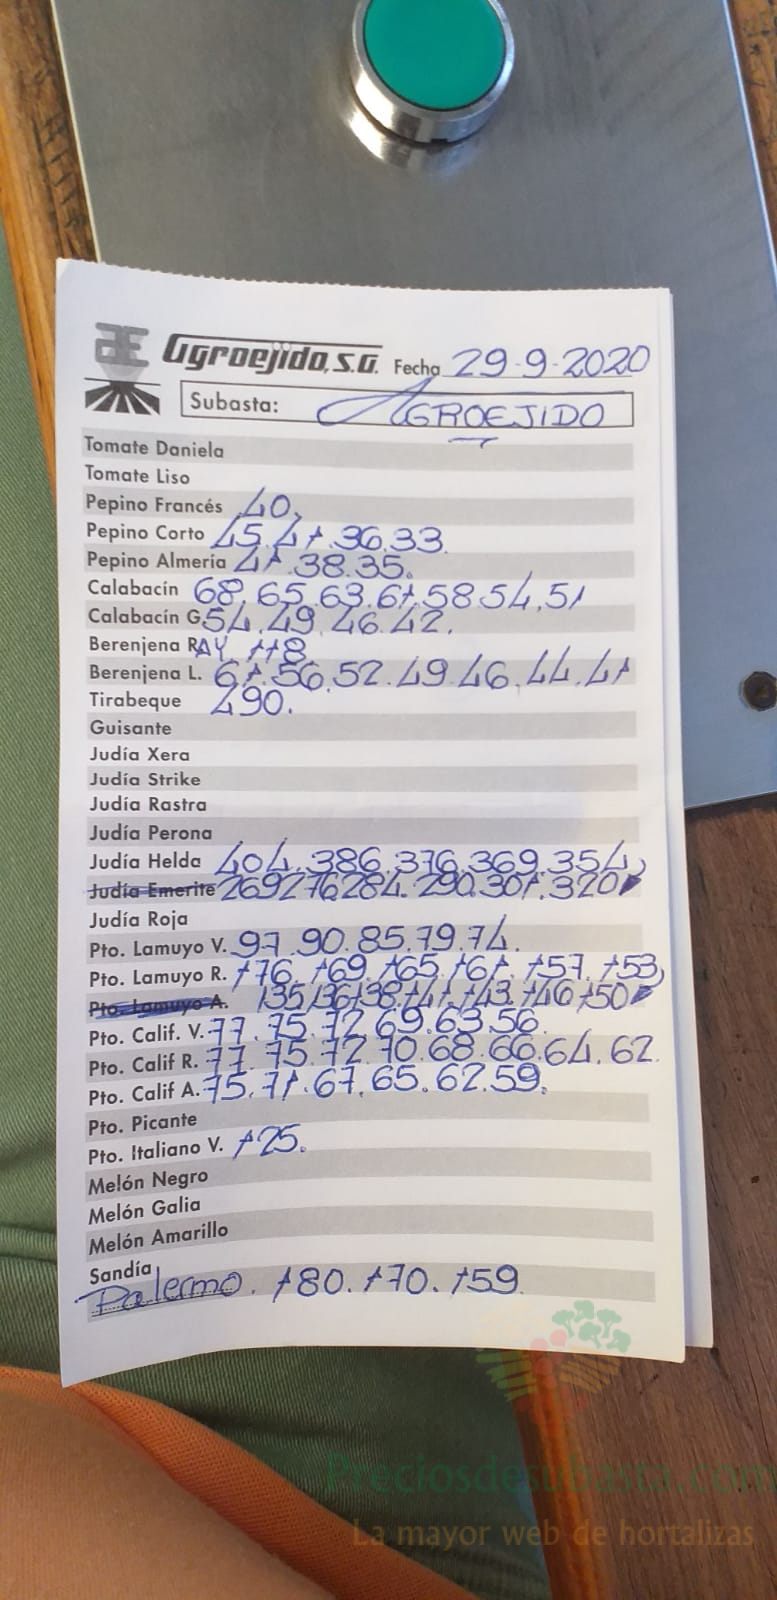 Agroejido, S.A. Fecha 29-9-2020
Subasta: AGROEJIDO
Tomate Daniela
Tomate Liso
Pepino Francés 40.
Pepino Corto 45.41.36.33.
Pepino Almería 41.38.35.
Calabacín 68.65.63.61.58.54.51
Calabacín G. 54.49.46.42.
Berenjena RAY 118
Berenjena L. 61.56.52.49.46.44.41
Tirabeque 490.
Guisante
Judía Xera
Judía Strike
Judía Rastra
Judía Perona
Judía Helda 404.386.376.369.354
Judía Emerite 269 276 284.290.301.320
Judía Roja
Pto. Lamuyo V. 97.90.85.79.74.
Pto. Lamuyo R. 176.169.165.161.157.153
Pto. Lamuyo A. 135 136 138.141.143.146 150
Pto. Calif. V. 77.75.72.69.63.56.
Pto. Calif R. 77.75.72.70.68.66.64.62.
Pto. Calif A. 75.71.67.65.62.59.
Pto. Picante
Pto. Italiano V. 125.
Melón Negro
Melón Galia
Melón Amarillo
Sandía
Palermo. 180.170.159.
Preciosdesubasta.com
La mayor web de hortalizas